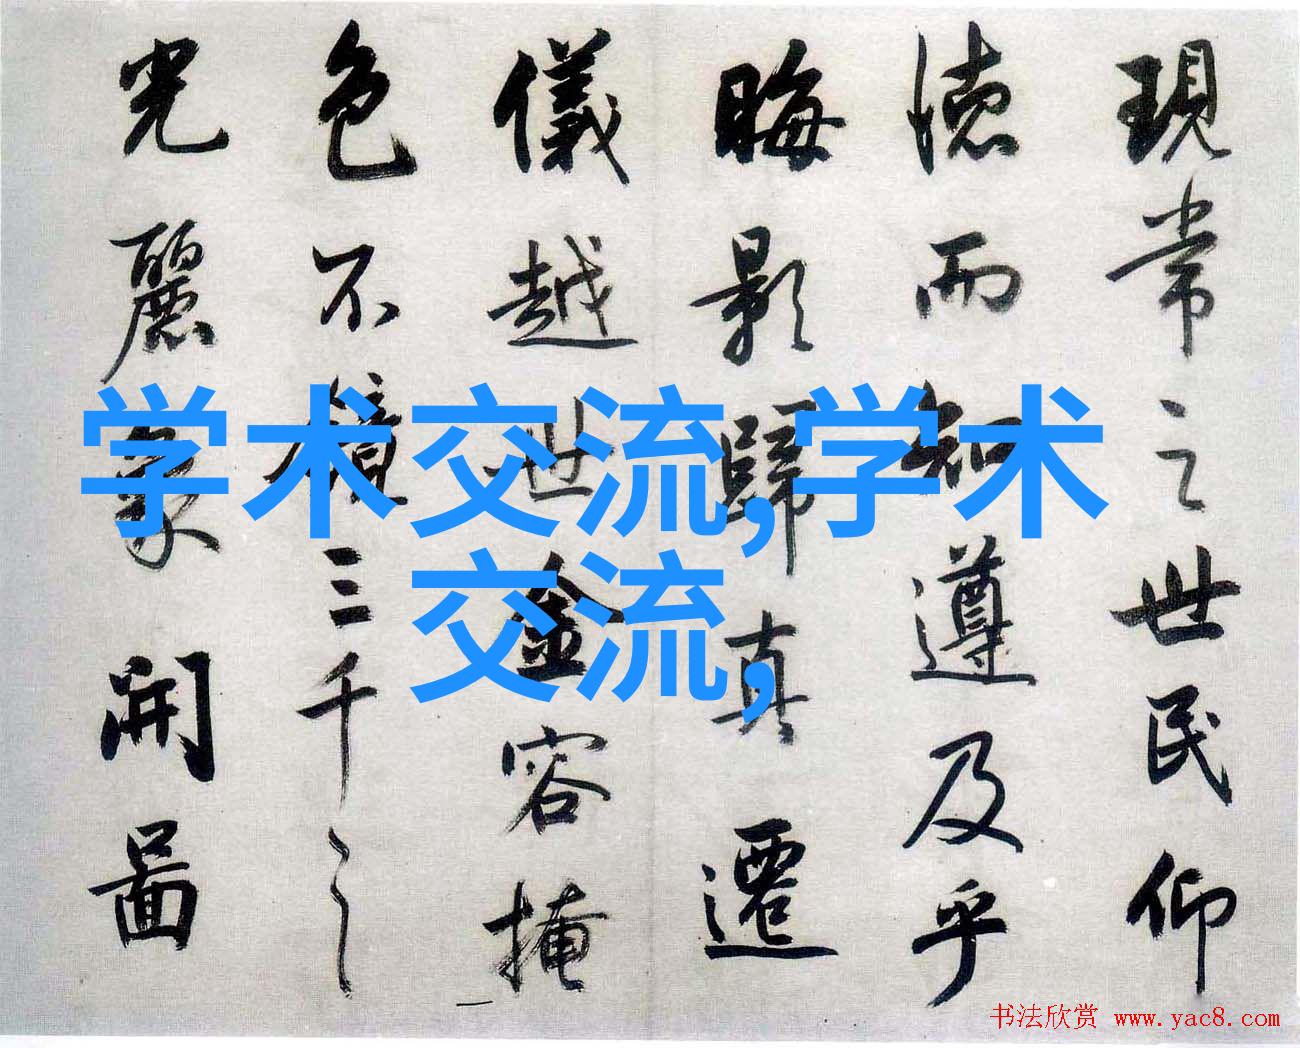 現常之世民仰
德而知遵及乎
晦影歸真遷
儀越世金容掩
色不鏡三千之
光麗象開圖
学术交流,学术
交流,
书法欣赏 www.yac8.com